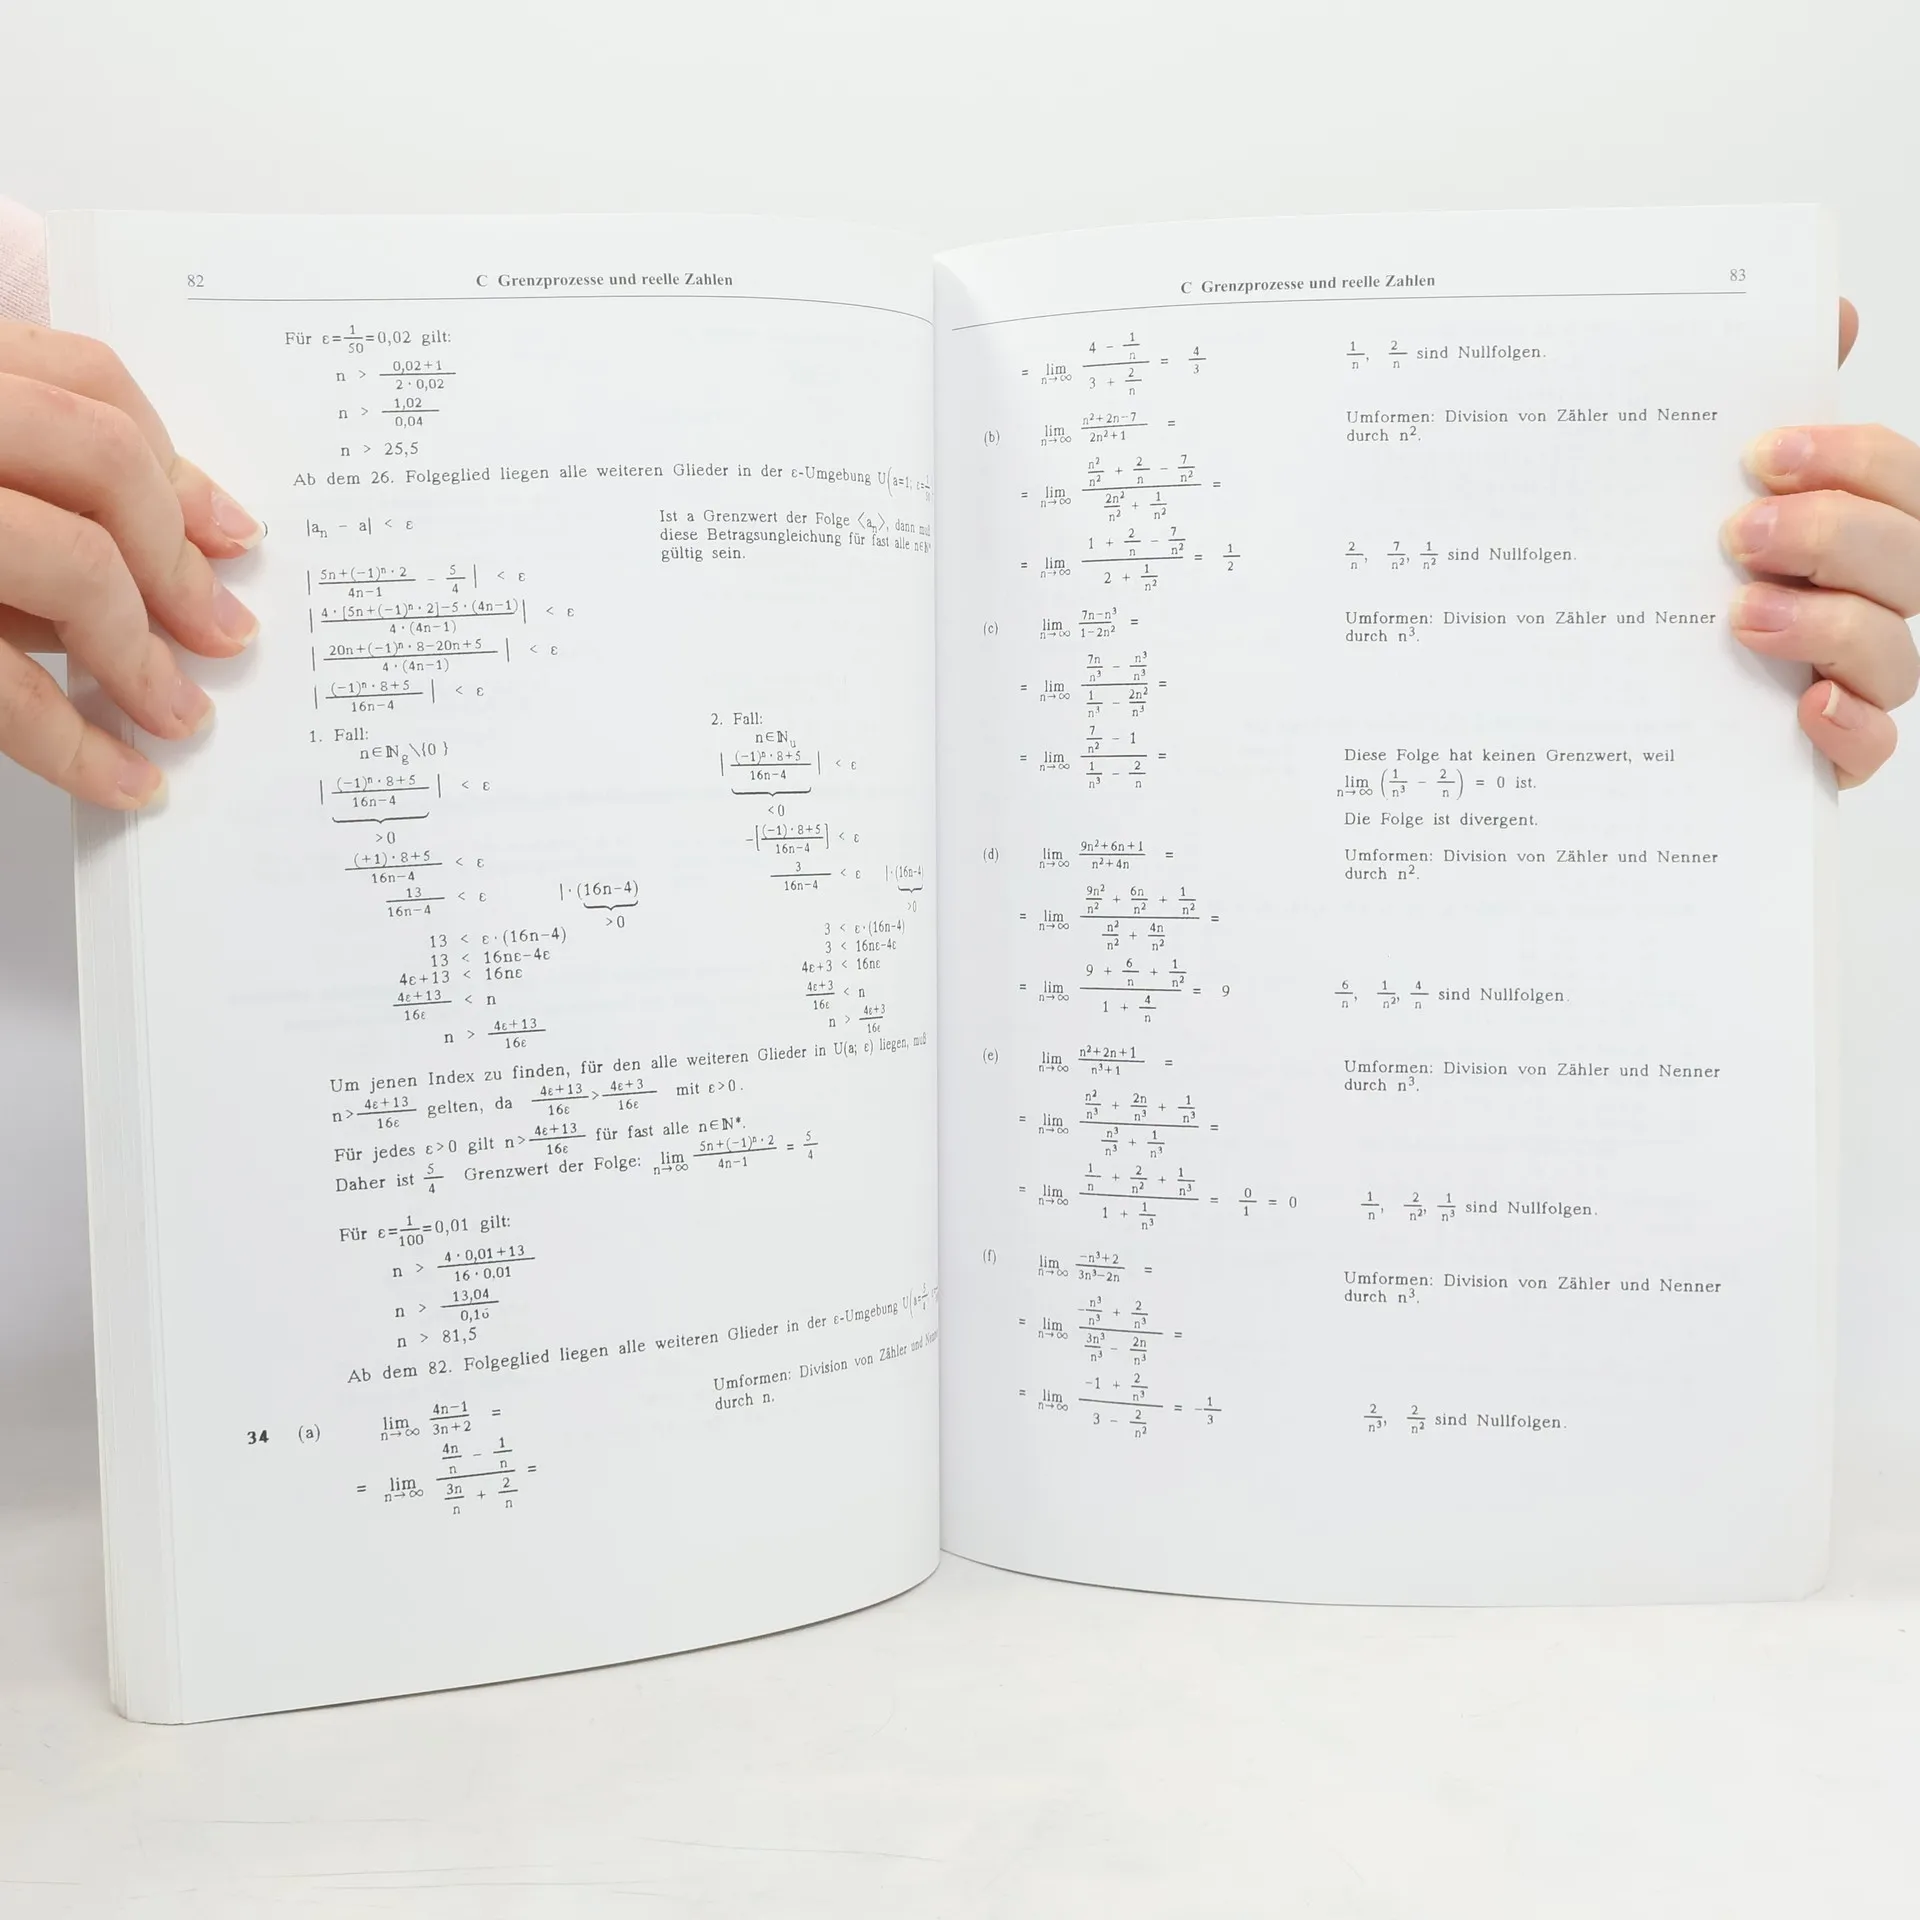 82
C Grenzprozesse und reelle Zahlen
Für ε=1/50=0,02 gilt:
n > (0,02+1)/(2·0,02)
n > 1,02/0,04
n > 25,5
Ab dem 26. Folgeglied liegen alle weiteren Glieder in der ε-Umgebung U(a=1;
) |aₙ - a| < ε
Ist a Grenzwert der Folge ⟨aₙ⟩, dann muß
diese Betragsungleichung für fast alle n∈ℕ*
gültig sein.
|(5n+(-1)ⁿ·2)/(4n-1) - 5/4| < ε
|(4·[5n+(-1)ⁿ·2]-5·(4n-1))/(4·(4n-1))| < ε
|(20n+(-1)ⁿ·8-20n+5)/(4·(4n-1))| < ε
|((-1)ⁿ·8+5)/(16n-4)| < ε
1. Fall:
n∈ℕg\{0}
|((-1)ⁿ·8+5)/(16n-4)| < ε
>0
((+1)·8+5)/(16n-4) < ε
13/(16n-4) < ε |·(16n-4)
>0
13 < ε·(16n-4)
13 < 16nε-4ε
4ε+13 < 16nε
(4ε+13)/16ε < n
n > (4ε+13)/16ε
2. Fall:
n∈ℕu
|((-1)ⁿ·8+5)/(16n-4)| < ε
<0
-[((-1)·8+5)/(16n-4)] < ε
3/(16n-4) < ε |·(16n-4)
>0
3 < ε·(16n-4)
3 < 16nε-4ε
4ε+3 < 16nε
(4ε+3)/16ε < n
n > (4ε+3)/16ε
Um jenen Index zu finden, für den alle weiteren Glieder in U(a; ε) liegen, muß
n>(4ε+13)/16ε gelten, da (4ε+13)/16ε>(4ε+3)/16ε mit ε>0.
Für jedes ε>0 gilt n>(4ε+13)/16ε für fast alle n∈ℕ*.
Daher ist 5/4 Grenzwert der Folge: lim n→∞ (5n+(-1)ⁿ·2)/(4n-1) = 5/4
Für ε=1/100=0,01 gilt:
n > (4·0,01+13)/(16·0,01)
n > 13,04/0,16
n > 81,5
Ab dem 82. Folgeglied liegen alle weiteren Glieder in der ε-Umgebung U(a=5/4
34 (a) lim n→∞ (4n-1)/(3n+2) =
Umformen: Division von Zähler und Nenner
durch n.
= lim n→∞ (4n/n - 1/n)/(3n/n + 2/n) =
C Grenzprozesse und reelle Zahlen
83
= lim n→∞ (4 - 1/n)/(3 + 2/n) = 4/3
1/n, 2/n sind Nullfolgen.
(b) lim n→∞ (n²+2n-7)/(2n²+1) =
Umformen: Division von Zähler und Nenner
durch n².
= lim n→∞ (n²/n² + 2/n - 7/n²)/(2n²/n² + 1/n²) =
= lim n→∞ (1 + 2/n - 7/n²)/(2 + 1/n²) = 1/2
2/n, 7/n², 1/n² sind Nullfolgen.
(c) lim n→∞ (7n-n³)/(1-2n²) =
Umformen: Division von Zähler und Nenner
durch n³.
= lim n→∞ (7n/n³ - n³/n³)/(1/n³ - 2n²/n³) =
= lim n→∞ (7/n² - 1)/(1/n³ - 2/n) =
Diese Folge hat keinen Grenzwert, weil
lim n→∞ (1/n³ - 2/n) = 0 ist.
Die Folge ist divergent.
(d) lim n→∞ (9n²+6n+1)/(n²+4n) =
Umformen: Division von Zähler und Nenner
durch n².
= lim n→∞ (9n²/n² + 6n/n² + 1/n²)/(n²/n² + 4n/n²) =
= lim n→∞ (9 + 6/n + 1/n²)/(1 + 4/n) = 9
6/n, 1/n², 4/n sind Nullfolgen.
(e) lim n→∞ (n²+2n+1)/(n³+1) =
Umformen: Division von Zähler und Nenner
durch n³.
= lim n→∞ (n²/n³ + 2n/n³ + 1/n³)/(n³/n³ + 1/n³) =
= lim n→∞ (1/n + 2/n² + 1/n³)/(1 + 1/n³) = 0/1 = 0
1/n, 2/n², 1/n³ sind Nullfolgen.
(f) lim n→∞ (-n³+2)/(3n³-2n) =
Umformen: Division von Zähler und Nenner
durch n³.
= lim n→∞ (-n³/n³ + 2/n³)/(3n³/n³ - 2n/n³) =
= lim n→∞ (-1 + 2/n³)/(3 - 2/n²) = -1/3
2/n³, 2/n² sind Nullfolgen.